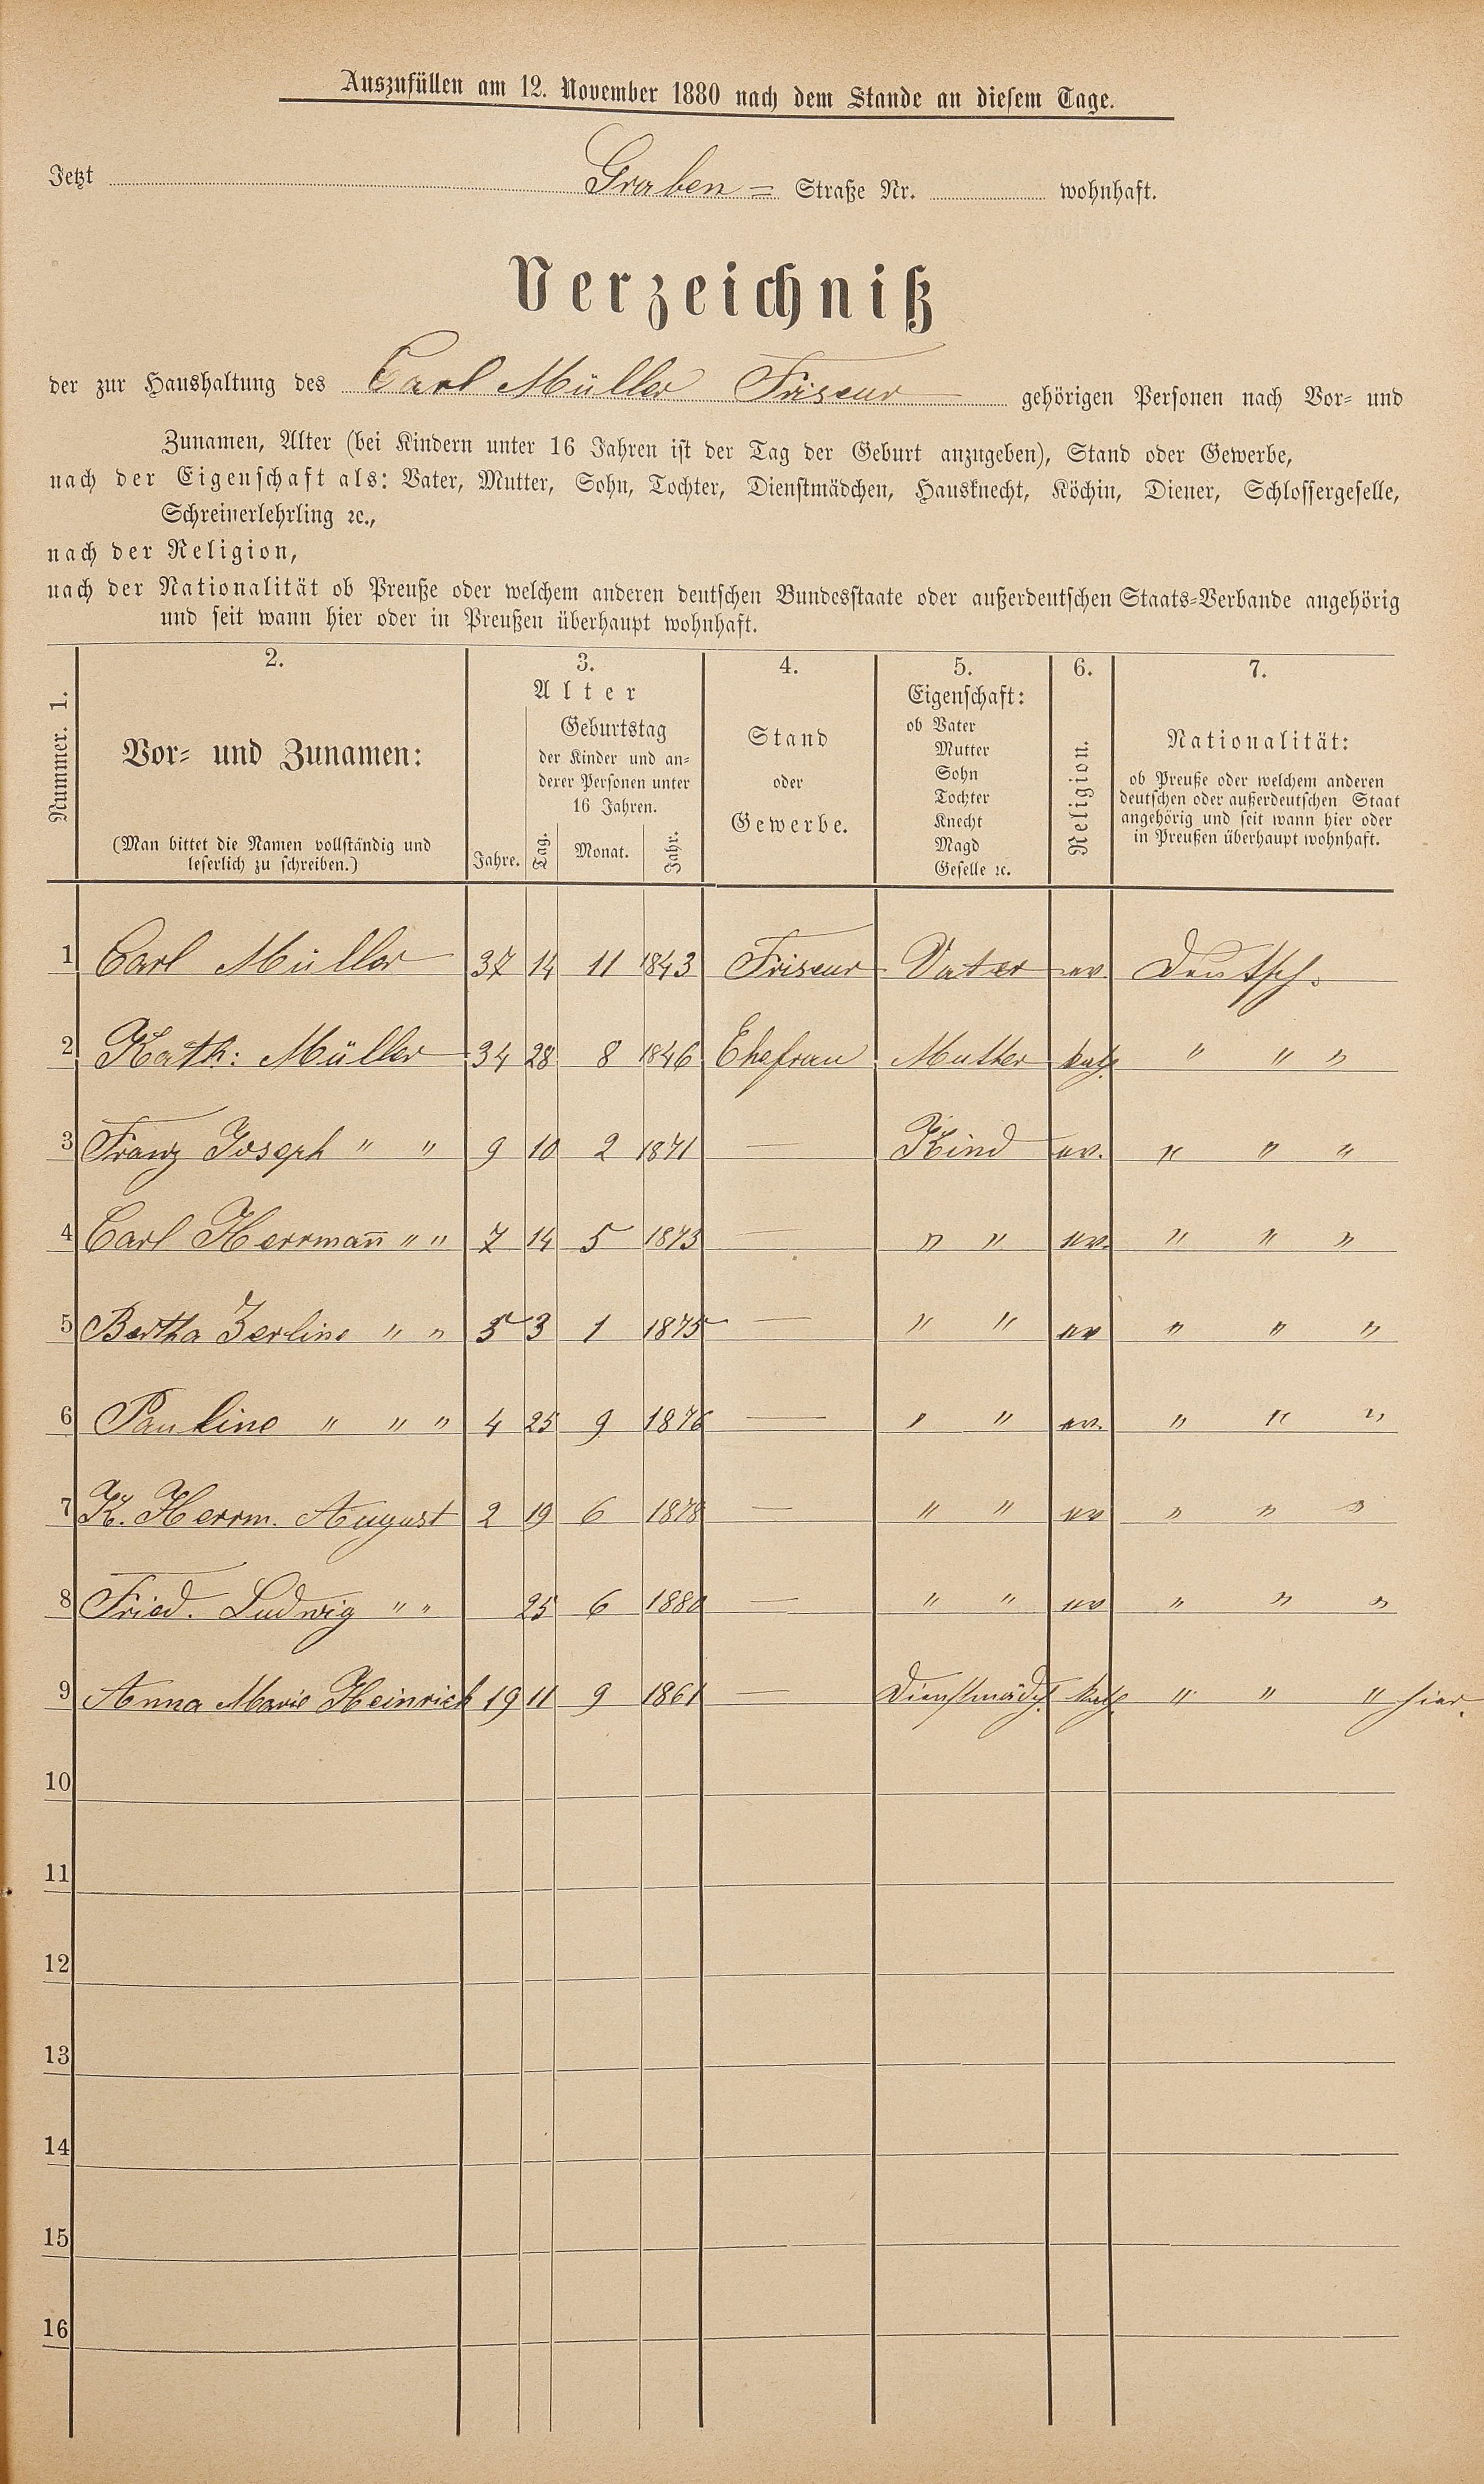 Auszufüllen am 12. November 1880 nach dem Stande an diesem Tage.
Jetzt Graben= Straße Nr. wohnhaft.
Verzeichniß
der zur Haushaltung des Carl Müller Friseur gehörigen Personen nach Vor= und
Zunamen, Alter (bei Kindern unter 16 Jahren ist der Tag der Geburt anzugeben), Stand oder Gewerbe,
nach der Eigenschaft als: Vater, Mutter, Sohn, Tochter, Dienstmädchen, Hausknecht, Köchin, Diener, Schlossergeselle,
Schreinerlehrling ꝛc.,
nach der Religion,
nach der Nationalität ob Preuße oder welchem anderen deutschen Bundesstaate oder außerdeutschen Staats=Verbande angehörig
und seit wann hier oder in Preußen überhaupt wohnhaft.
Nummer. 1.
2.
Vor= und Zunamen:
(Man bittet die Namen vollständig und
leserlich zu schreiben.)
3.
Alter
Jahre.
Geburtstag
der Kinder und an=
derer Personen unter
16 Jahren.
Tag. Monat. Jahr.
4.
Stand
oder
Gewerbe.
5.
Eigenschaft:
ob Vater
Mutter
Sohn
Tochter
Knecht
Magd
Geselle ꝛc.
6.
Religion.
7.
Nationalität:
ob Preuße oder welchem anderen
deutschen oder außerdeutschen Staat
angehörig und seit wann hier oder
in Preußen überhaupt wohnhaft.
1 Carl Müller 37 14 11 1843 Friseur Vater ev. Deutsch.
2 Kath: Müller 34 28 8 1846 Ehefrau Mutter kath. " " "
3 Franz Joseph " " 9 10 2 1871 — Kind ev. " " "
4 Carl Herrman̄ " " 7 14 5 1873 — " " ev. " " "
5 Bertha Zerline " " 5 3 1 1875 — " " ev " " "
6 Pauline " " " 4 25 9 1876 — " " ev. " " "
7 K. Herrm. August 2 19 6 1878 — " " ev " " "
8 Fried. Ludwig " " 25 6 1880 — " " ev " " "
9 Anna Marie Heinrich 19 11 9 1861 — Dienstmädch. kath. " " " hier.
10
11
12
13
14
15
16